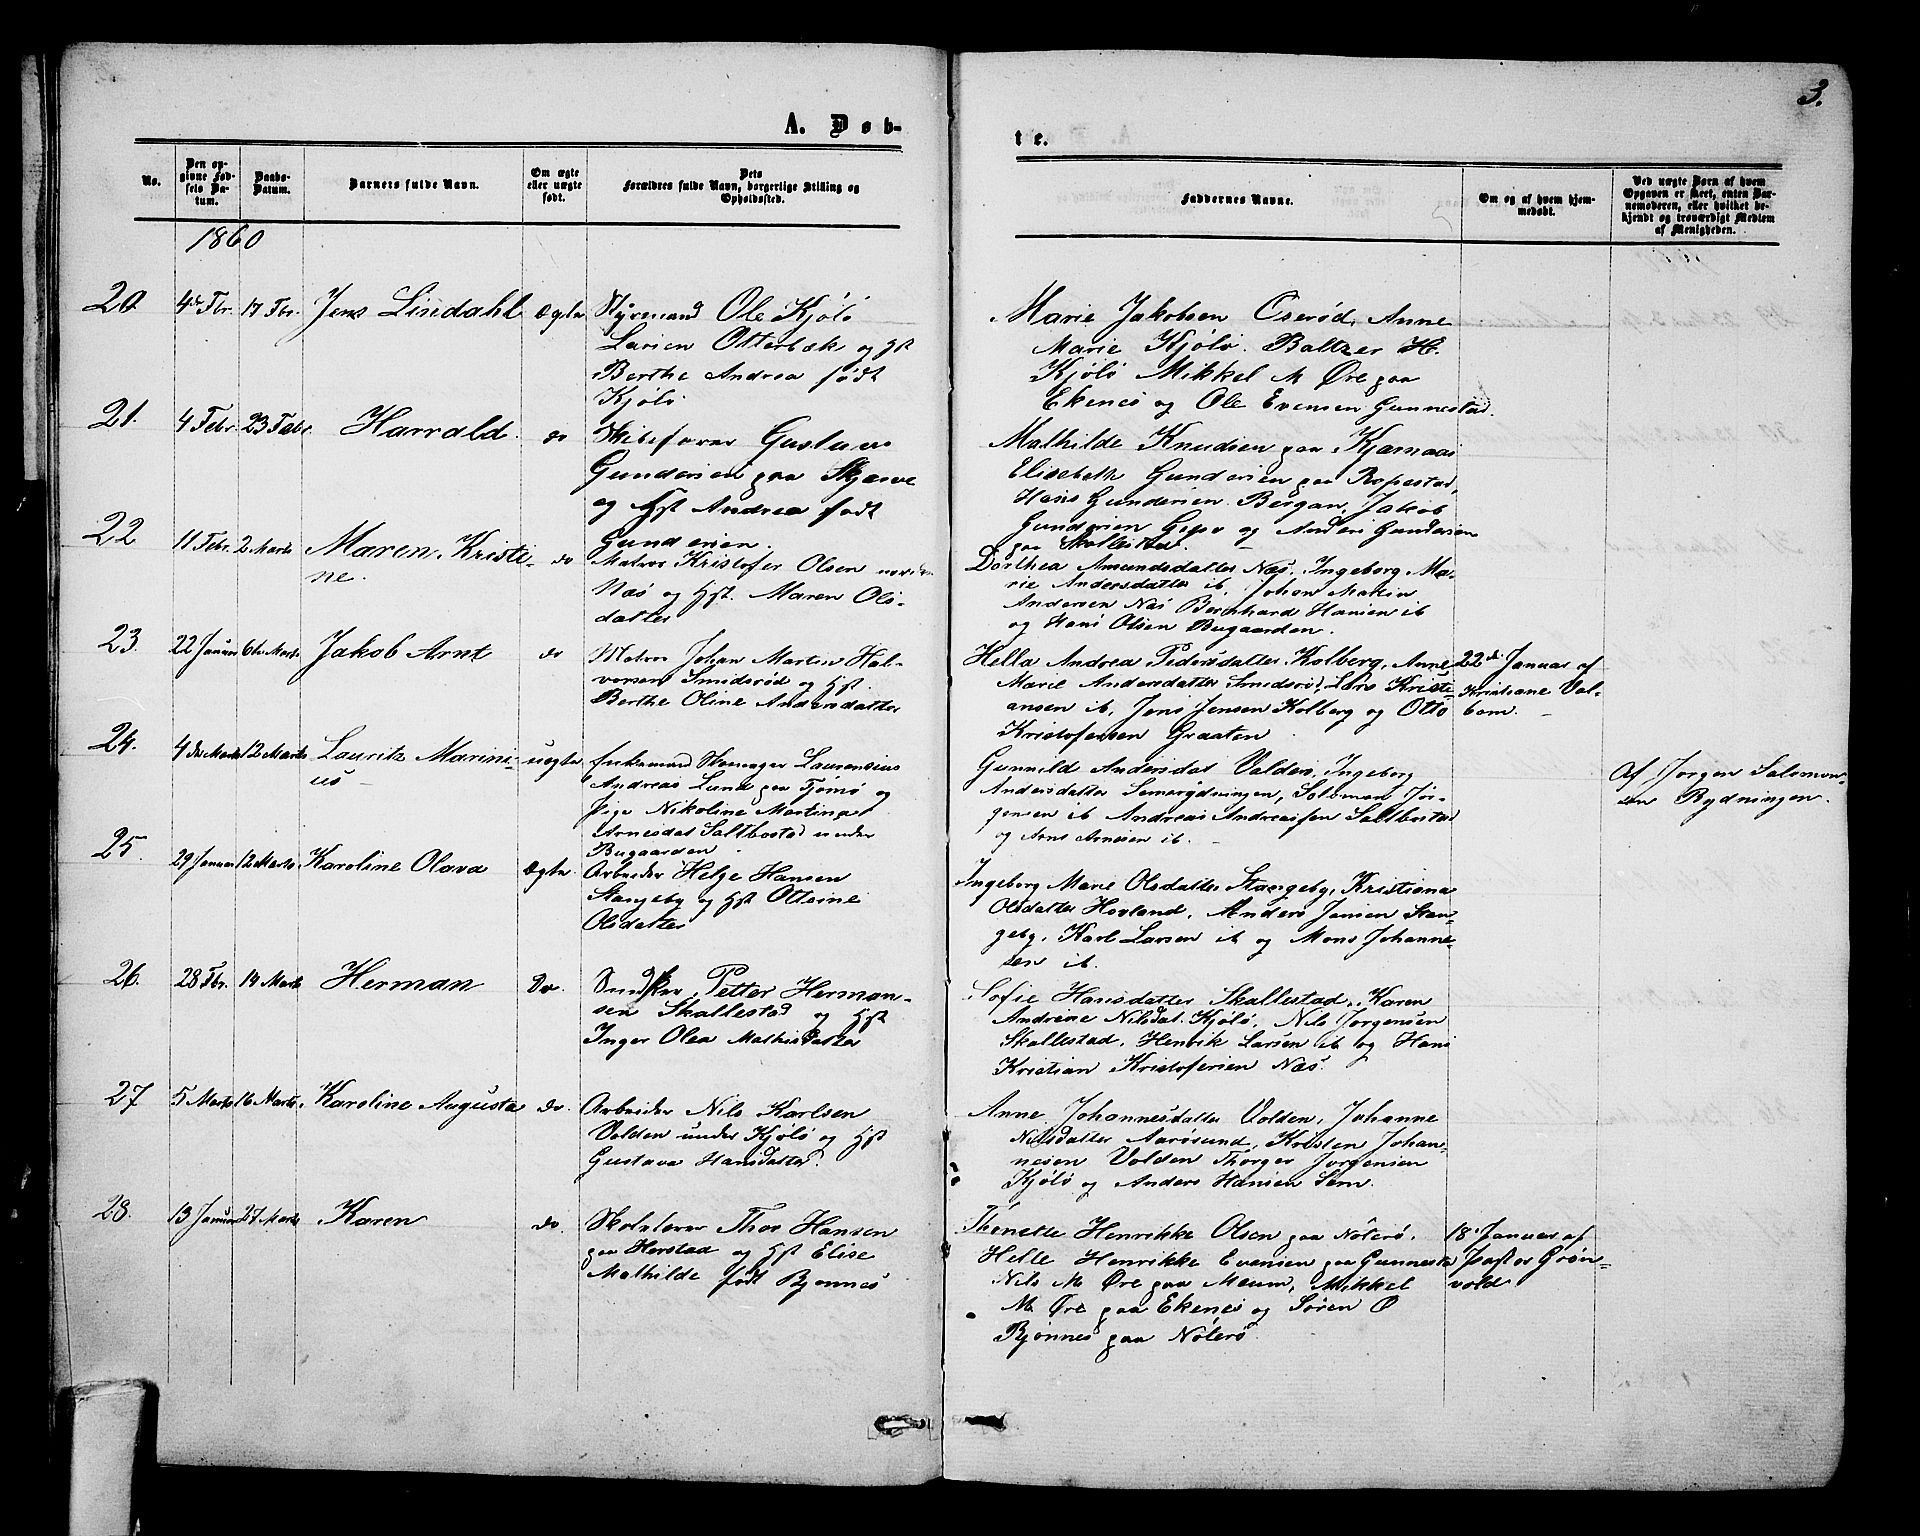 3.
A. Døb-
te.
No.
Den op-
givne Fød-
sels Da-
tum.
Daabs-
Datum.
Barnets fulde Navn.
Om ægte
eller uægte
født.
Dets
Forældres fulde Navn, borgerlige Stilling og
Opholdssted.
Faddernes Navne.
Om og af hvem hjem-
medøbt.
Ved uægte Børn af hvem
Opgaven er skeet, enten Bar-
nemoderen, eller hvilket be-
kjendt og troværdigt Medlem
af Menigheden.
1860
20. 4de Fbr. 17 Fbr. Jens Lindahl Ægte Styrmand Ole Kjölö
Larsen Otterbæk og Hst
Berthe Andrea født
Kjölö
Marie Jakobsen Oserød, Anne
Marie Kjölö. Baltzer H.
Kjölö Mikkel M Øre paa
Ekenes og Ole Evensen Gunnestad.
21. 4 Febr. 23 Febr. Harrald. do Skibsfører Gustav
Gundersen paa Skjerve
og Hst Andrea født
Gundersen.
Mathilde Knudsen paa Kjærnaas
Elisebeth Gundersen paa Ropestad,
Hans Gundersen Bergan, Jakob
Gundersen Gipø og Anders Gundersen
paa Skallestad.
22 11 Febr. 2 Marts Maren Kristi-
ne. do Matros Kristofer Olsen nordre
Næs og Hst. Maren Ols-
datter
Dorthea Amundsdatter Næs, Ingeborg Ma-
rie Andersdatter ib, Johan Martin
Andersen Næs Bernhard Hansen ib
og Hans Olsen Bugaarden.
23. 22 Januar 6te Marts Jakob Arnt do Matros Johan Martin Hal-
vorsen Smidsrød og Hst.
Berthe Oline Andersdatter
Hella Andrea Pedersdatter Kolberg, Anne
Marie Andersdatter Smidsrød, Lars Kristi-
ansen ib, Jens Jensen Kolberg og Otto
Kristofersen Graaten.
22de Januar af
Kristiane Val-
bom.
24. 4de Marts 12 Marts Lauritz Marini-
us uægte Enkemand Laurensius
Andreas Lund paa Tjømø og
Pige Nikoline Martina
Arnesdat Saltbostad under
Bugaarden
Gunnild Andersdat Valder, Ingeborg
Andersdatter Semsrydningen, Salomon Jør-
gensen ib Andreas Andreassen Saltbostad
og Arne Arnesen ib.
Af Jørgen Salomon-
sen Rydningen.
25. 29 Januar 12 Marts Karoline Olava Ægte. Arbeider Helge Hansen
Stangeby og Hst Ottoine
Olsdatter
Ingeborg Marie Olsdatter Stangeby, Kristiane
Olsdatter Hovland, Anders Jensen Stan-
geby, Karl Larsen ib og Mons Johanne-
sen ib.
26. 28 Fbr. 14 Marts Herman Do. Petter Herman-
sen Skallestad og Hst
Inger Olea Mathisdatter
Sofie Hansdatter Skallestad, Karen
Andrine Nilsdat. Kjölö, Nils Jorgensen
Skallestad, Henrik Larsen ib og Hans
Kristian Kristofersen Næs.
27 5 Marts 16 Marts. Karoline Augusta do. Arbeider Nils Karlsen
Volden under Kjölö og Hst
Gustava Hansdatter.
Anne Johannesdatter Volden, Johanne
Nilsdatter Aarøsund, Kristen Johan-
nesen Volden Thorger Jorgensen
Kjölö og Anders Hansen Sem.
28. 13 Januar 27 Marts Karen do Skolelærer Thor Hansen
paa Herstad og Hst Elise
Mathilde født Bjønnes
Thonette Henrikke Olsen paa Nøterø,
Helle Henrikke Evensen paa Gunnestad
Nils M Øre paa Meum, Mikkel
M. Øre paa Ekenes og Søren O
Bjønnes paa Nøterö.
18. Januar af
Pastor Grøn-
vold